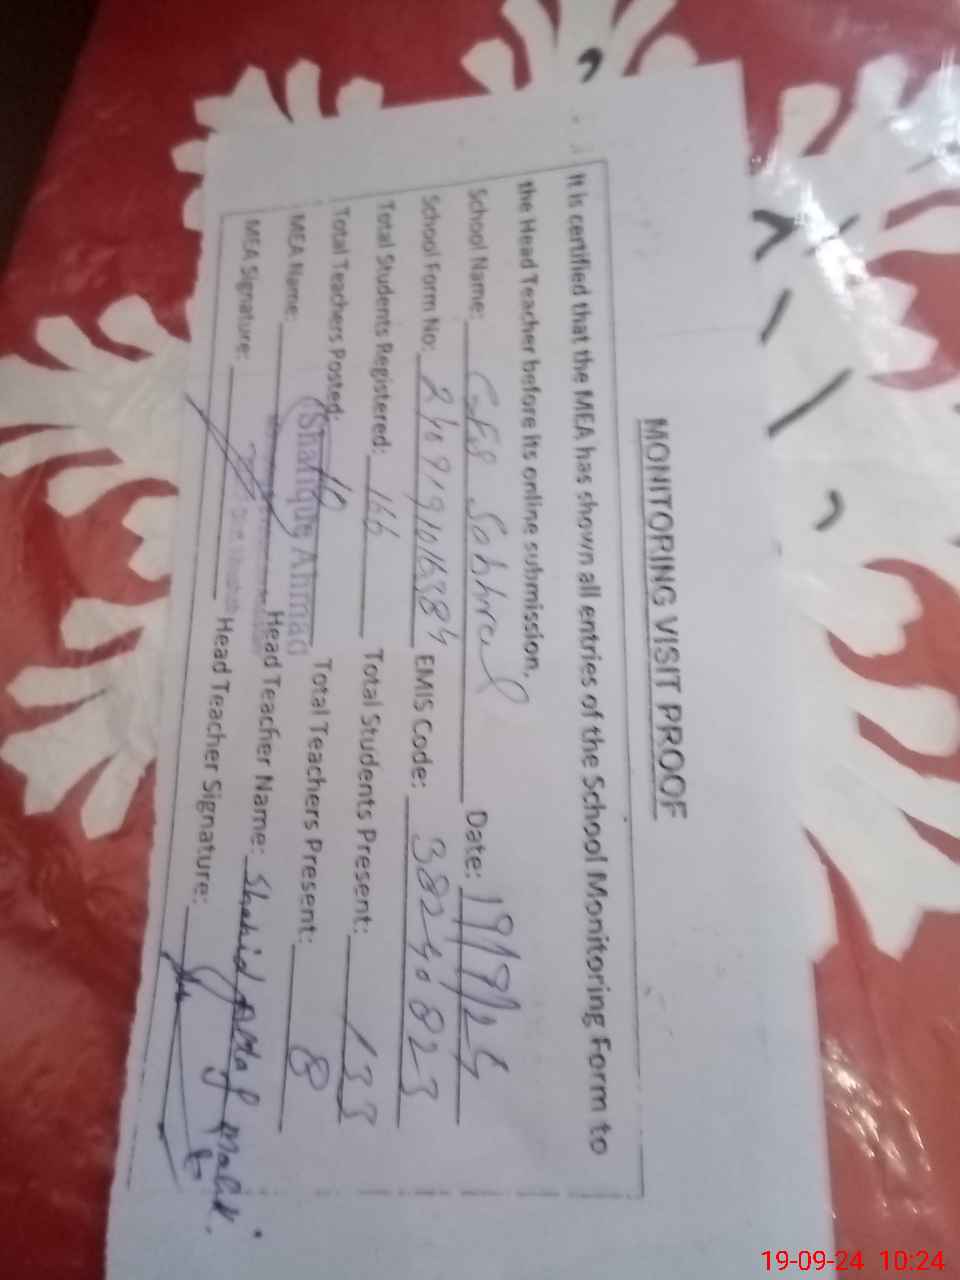 MONITORING VISIT PROOF
It is certified that the MEA has shown all entries of the School Monitoring Form to
the Head Teacher before its online submission.
School Name: Date: 19/9/24
School Form No: EMIS Code: 38240823
Total Students Registered: 166 Total Students Present: 133
Total Teachers Posted: 10 Total Teachers Present: 8
MEA Name: Shafique Ahmad Head Teacher Name: Shahid Malik
MEA Signature: Head Teacher Signature:
19-09-24 10:24